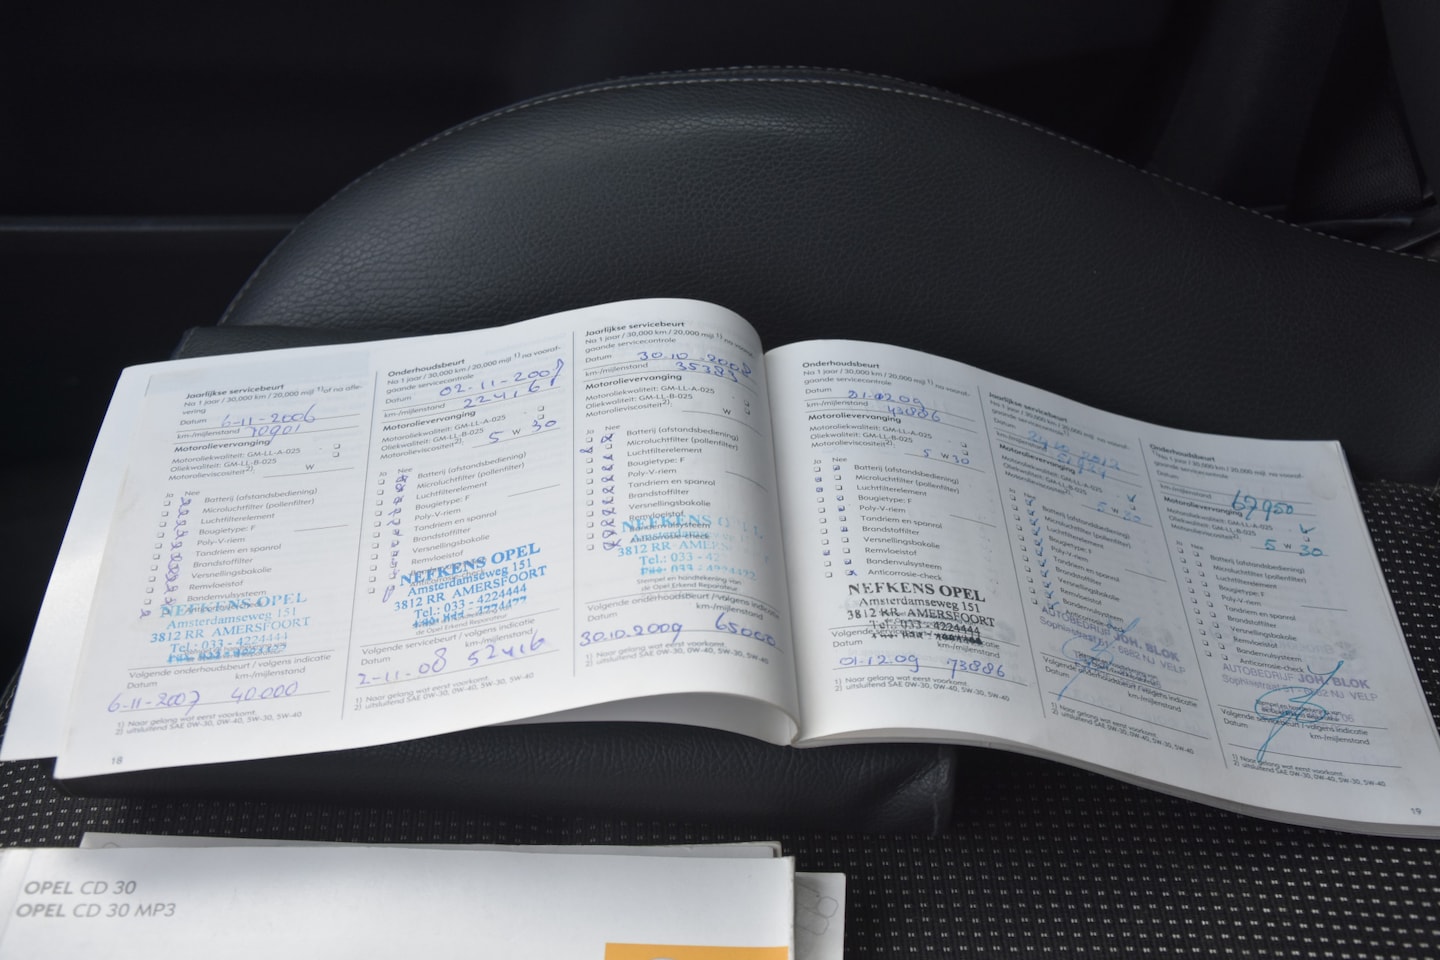 Jaarlijkse servicebeurt
Na 1 jaar / 30,000 km / 20,000 mijl 1) of na afle-
vering
Datum 6-11-2006
km-/mijlenstand 10901
Motorolievervanging
Motoroliekwaliteit: GM-LL-A-025
Oliekwaliteit: GM-LL-B-025
Motorolieviscositeit2). W
Ja Nee
Batterij (afstandsbediening)
Microluchtfilter (pollenfilter)
Luchtfilterelement
Bougietype: F
Poly-V-riem
Tandriem en spanrol
Brandstoffilter
Versnellingsbakolie
Remvloeistof
Bandenvulsysteem
NEFKENS OPEL
Amsterdamseweg 151
3812 RR AMERSFOORT
Tel.: 033 - 4224444
Volgende onderhoudsbeurt / volgens indicatie
Datum km-/mijlenstand
6-11-2007 40.000
1) Naar gelang wat eerst voorkomt.
2) uitsluitend SAE 0W-30, 0W-40, 5W-30, 5W-40
18
Onderhoudsbeurt
Na 1 jaar / 30,000 km / 20,000 mijl 1) na vooraf-
gaande servicecontrole
Datum 02-11-2007
km-/mijlenstand 22416
Motorolievervanging
Motoroliekwaliteit: GM-LL-A-025
Oliekwaliteit: GM-LL-B-025
Motorolieviscositeit2). 5 W 30
Ja Nee
Batterij (afstandsbediening)
Microluchtfilter (pollenfilter)
Luchtfilterelement
Bougietype: F
Poly-V-riem
Tandriem en spanrol
Brandstoffilter
Versnellingsbakolie
Remvloeistof
NEFKENS OPEL
Amsterdamseweg 151
3812 RR AMERSFOORT
Tel.: 033 - 4224444
de Opel Erkend Reparateur
Volgende servicebeurt / volgens indicatie
Datum km-/mijlenstand
2-11-08 52416
1) Naar gelang wat eerst voorkomt.
2) uitsluitend SAE 0W-30, 0W-40, 5W-30, 5W-40
Jaarlijkse servicebeurt
Na 1 jaar / 30,000 km / 20,000 mijl 1) na vooraf-
gaande servicecontrole
Datum 30.10.2008
km-/mijlenstand 35383
Motorolievervanging
Motoroliekwaliteit: GM-LL-A-025
Oliekwaliteit: GM-LL-B-025
Motorolieviscositeit2). W
Ja Nee
Batterij (afstandsbediening)
Microluchtfilter (pollenfilter)
Luchtfilterelement
Bougietype: F
Poly-V-riem
Tandriem en spanrol
Brandstoffilter
Versnellingsbakolie
Remvloeistof
Bandenvulsysteem
Anticorrosie-check
NEFKENS OPEL
3812 RR AMERS
Tel.: 033 - 42
Stempel en handtekening van
de Opel Erkend Reparateur
Volgende onderhoudsbeurt / volgens indicatie
Datum km-/mijlenstand
30.10.2009 65000
1) Naar gelang wat eerst voorkomt.
2) uitsluitend SAE 0W-30, 0W-40, 5W-30, 5W-40
Onderhoudsbeurt
Na 1 jaar / 30,000 km / 20,000 mijl 1) na vooraf-
gaande servicecontrole
Datum
km-/mijlenstand 43886
Motorolievervanging
Motoroliekwaliteit: GM-LL-A-025
Oliekwaliteit: GM-LL-B-025
Motorolieviscositeit2). 5 W 30
Ja Nee
Batterij (afstandsbediening)
Microluchtfilter (pollenfilter)
Luchtfilterelement
Bougietype: F
Poly-V-riem
Tandriem en spanrol
Brandstoffilter
Versnellingsbakolie
Remvloeistof
Bandenvulsysteem
Anticorrosie-check
NEFKENS OPEL
Amsterdamseweg 151
3812 RR AMERSFOORT
Tel.: 033 - 4224444
Datum km-/mijlenstand
01.12.09 73886
1) Naar gelang wat eerst voorkomt.
2) uitsluitend SAE 0W-30, 0W-40, 5W-30, 5W-40
Jaarlijkse servicebeurt
Na 1 jaar / 30,000 km / 20,000 mijl 1) na vooraf-
gaande servicecontrole
Datum 2012
km-/mijlenstand
Motorolievervanging
5 W 30
Ja Nee
Batterij (afstandsbediening)
Microluchtfilter (pollenfilter)
Luchtfilterelement
Bougietype: F
Poly-V-riem
Tandriem en spanrol
Brandstoffilter
Versnellingsbakolie
Remvloeistof
Bandenvulsysteem
AUTOBEDRIJF JOH. BLOK
VELP
km-/mijlenstand
1) Naar gelang wat eerst voorkomt.
2) uitsluitend SAE 0W-30, 0W-40, 5W-30, 5W-40
Onderhoudsbeurt
Na 1 jaar / 30,000 km / 20,000 mijl 1) na vooraf-
gaande servicecontrole
Datum
km-/mijlenstand 67950
Motorolievervanging
Motoroliekwaliteit: GM-LL-A-025
Oliekwaliteit: GM-LL-B-025
Motorolieviscositeit2). 5 W 30
Ja Nee
Batterij (afstandsbediening)
Microluchtfilter (pollenfilter)
Luchtfilterelement
Bougietype: F
Poly-V-riem
Tandriem en spanrol
Brandstoffilter
Versnellingsbakolie
Remvloeistof
Bandenvulsysteem
Anticorrosie-check
AUTOBEDRIJF JOH. BLOK
NJ VELP
Volgende servicebeurt / volgens indicatie
Datum km-/mijlenstand
1) Naar gelang wat eerst voorkomt.
2) uitsluitend SAE 0W-30, 0W-40, 5W-30, 5W-40
19
OPEL CD 30
OPEL CD 30 MP3